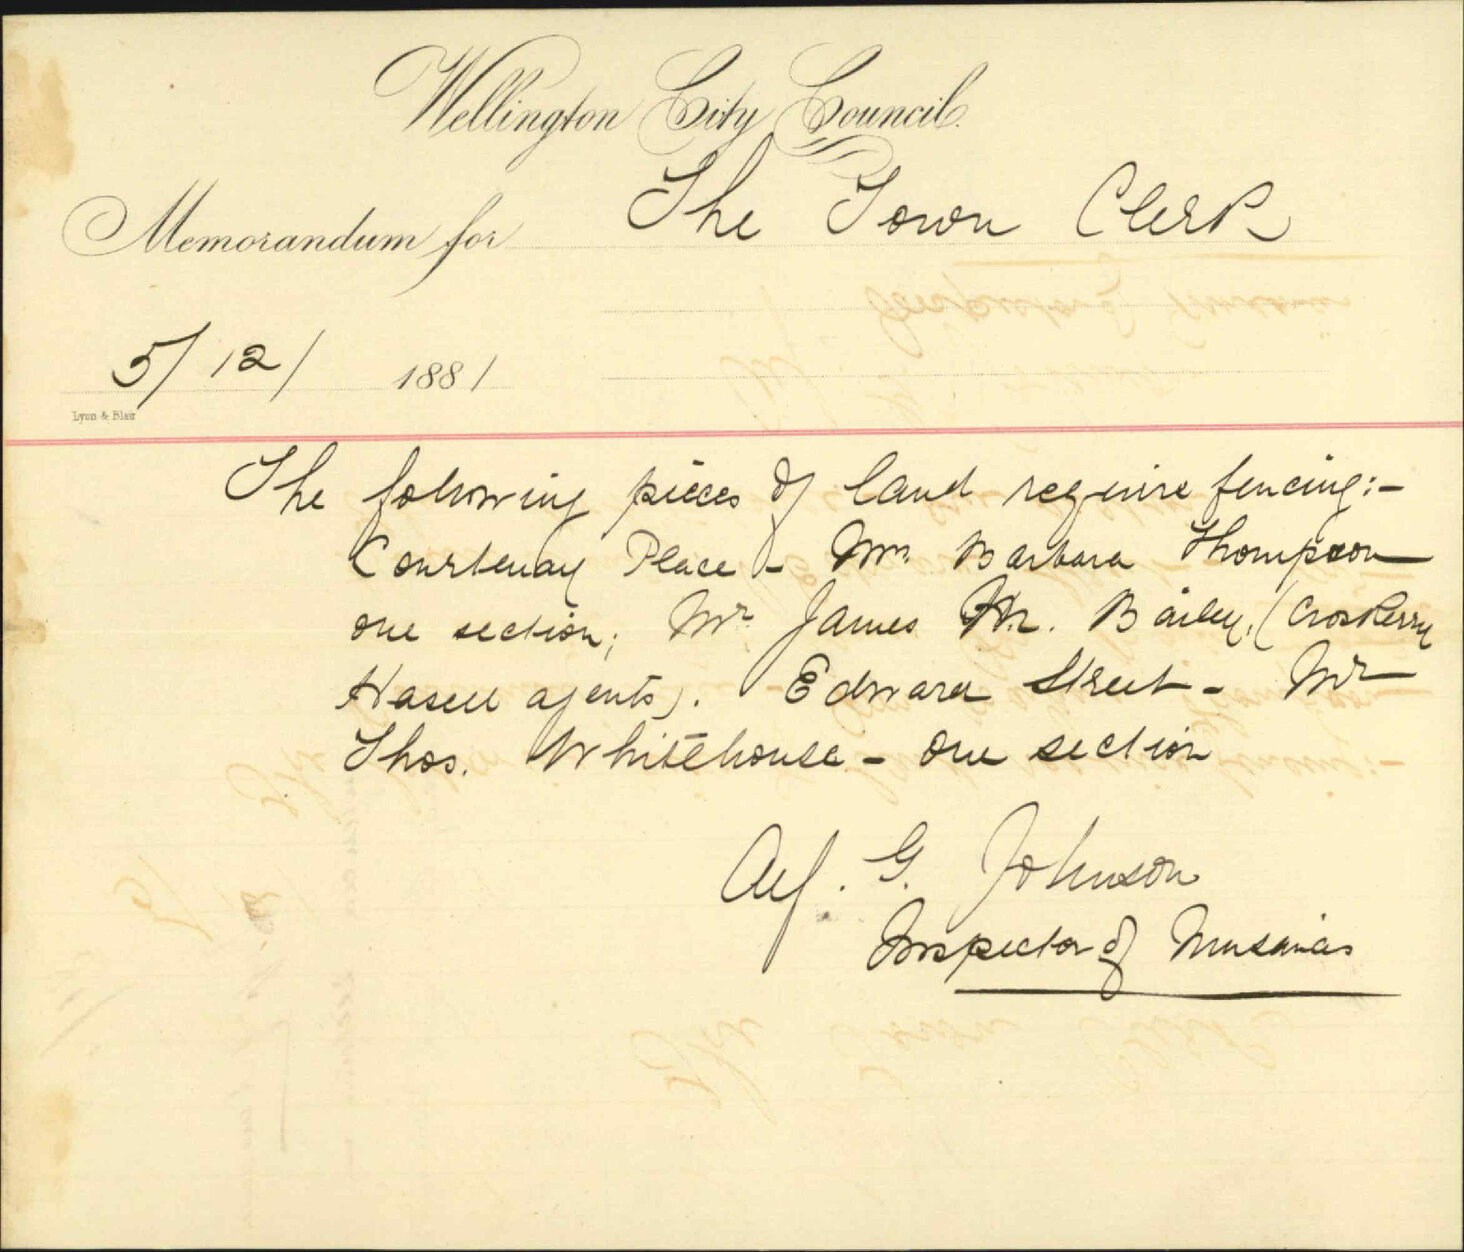 Wellington City Council.
Memorandum for The Town Clerk
5/12/ 1881
Lyon & Blair
The following pieces of land require fencing:-
Courtenay Place - Mrs Barbara Thompson
one section; Mr James Bailey, (Croskerry
Hasell agents). Edward Street - Mr
Thos. Whitehouse - one section
Alf. G. Johnson
Inspector of Nusances